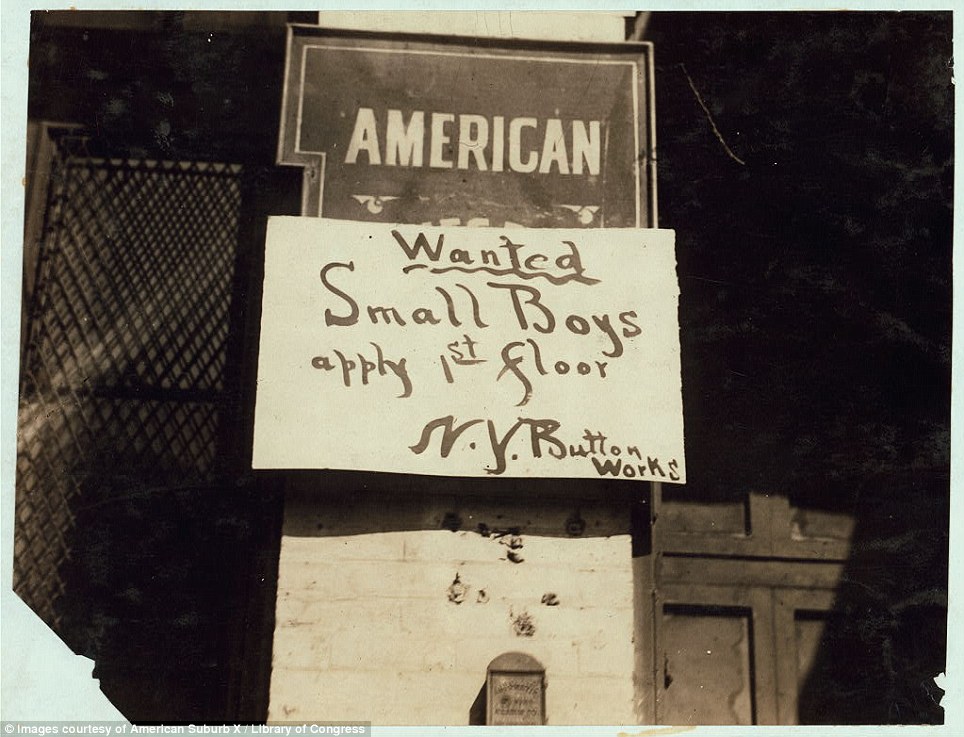 AMERICAN
Wanted
Small Boys
apply 1st floor
N.Y. Button
Works
© Images courtesy of American Suburb X / Library of Congress